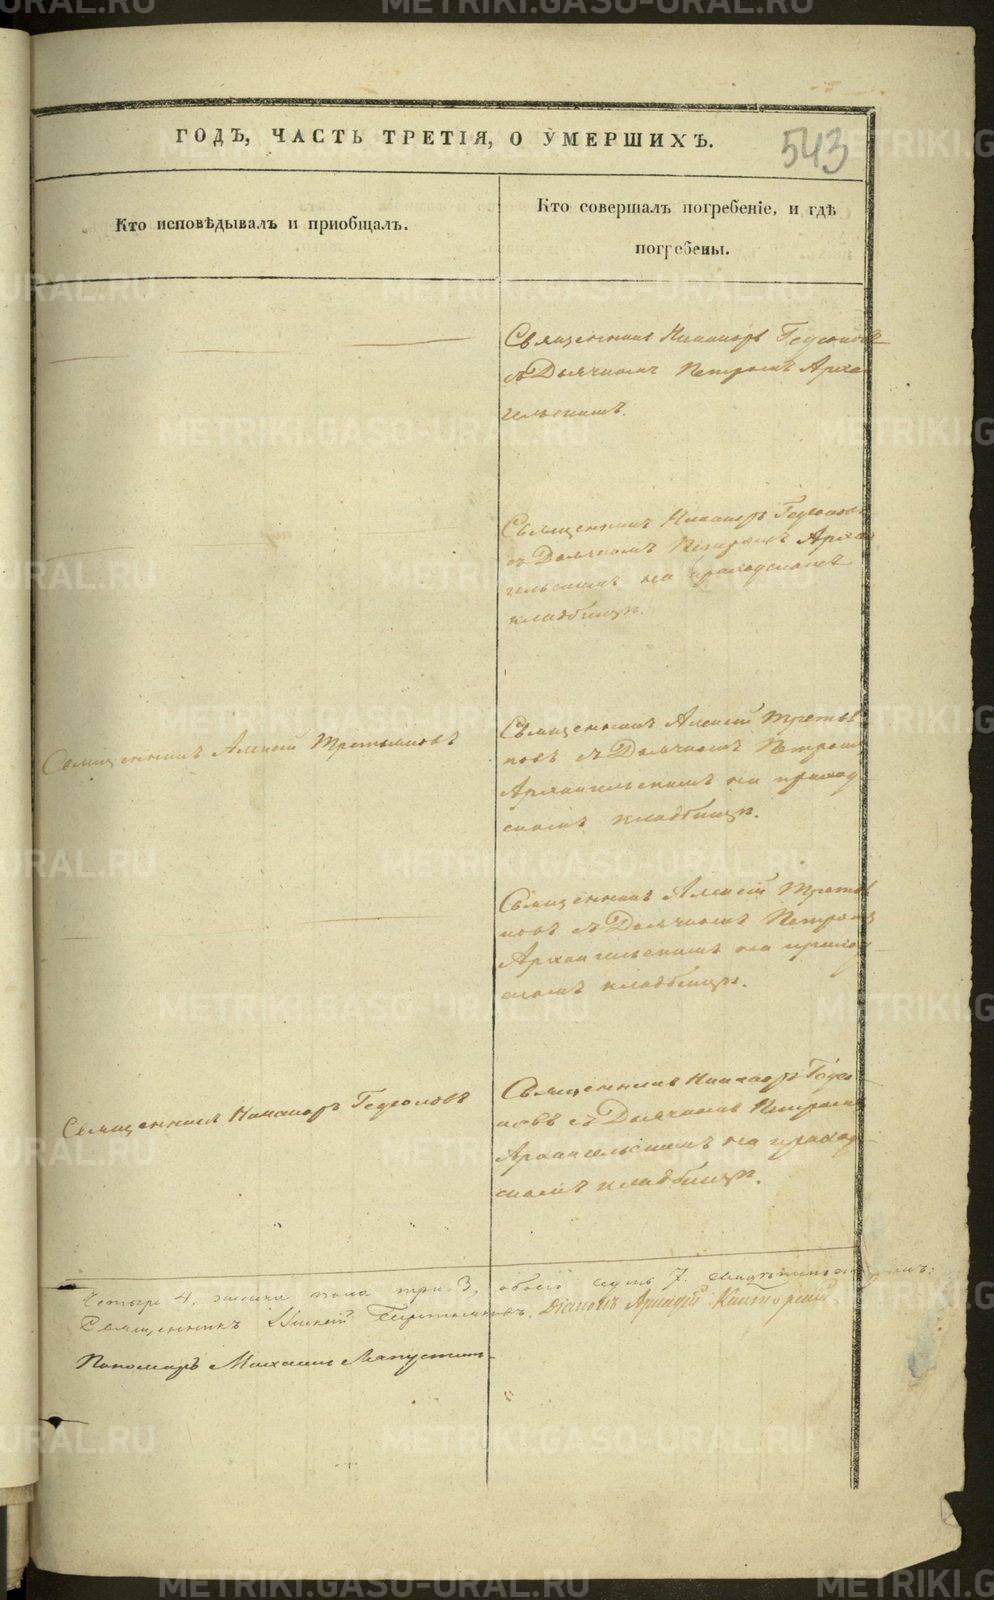 ГОДЪ, ЧАСТЬ ТРЕТІЯ, О УМЕРШИХЪ.
543
Кто исповѣдывалъ и приобщалъ.
Кто совершалъ погребеніе, и гдѣ
погребены.
Священникъ Никаноръ Гедеоновъ
съ Дьячкомъ Петромъ Архан
гельскимъ.
Священникъ Никаноръ Гедеонов
съ Дьячкомъ Петромъ Архан
гельскимъ на приходскомъ
кладбищѣ.
Священникъ Алексій Третьяковъ
Священникъ Алексій Третья
ковъ съ Дьячкомъ Петромъ
Архангельскимъ на приход
скомъ кладбищѣ.
Священникъ Алексій Третья
ковъ съ Дьячкомъ Петромъ
Архангельскимъ на приход
скомъ кладбищѣ.
Священникъ Никаноръ Гедеоновъ
Священникъ Никаноръ Гедео
новъ съ Дьячкомъ Петромъ
Архангельскимъ на приход
скомъ кладбищѣ.
четыре 4, женска пола три 3, обоего семь 7.
Священникъ Алексій Третьяковъ. Діаконъ Аркадій
Пономарь Михаилъ
METRIKI.GASO-URAL.RU